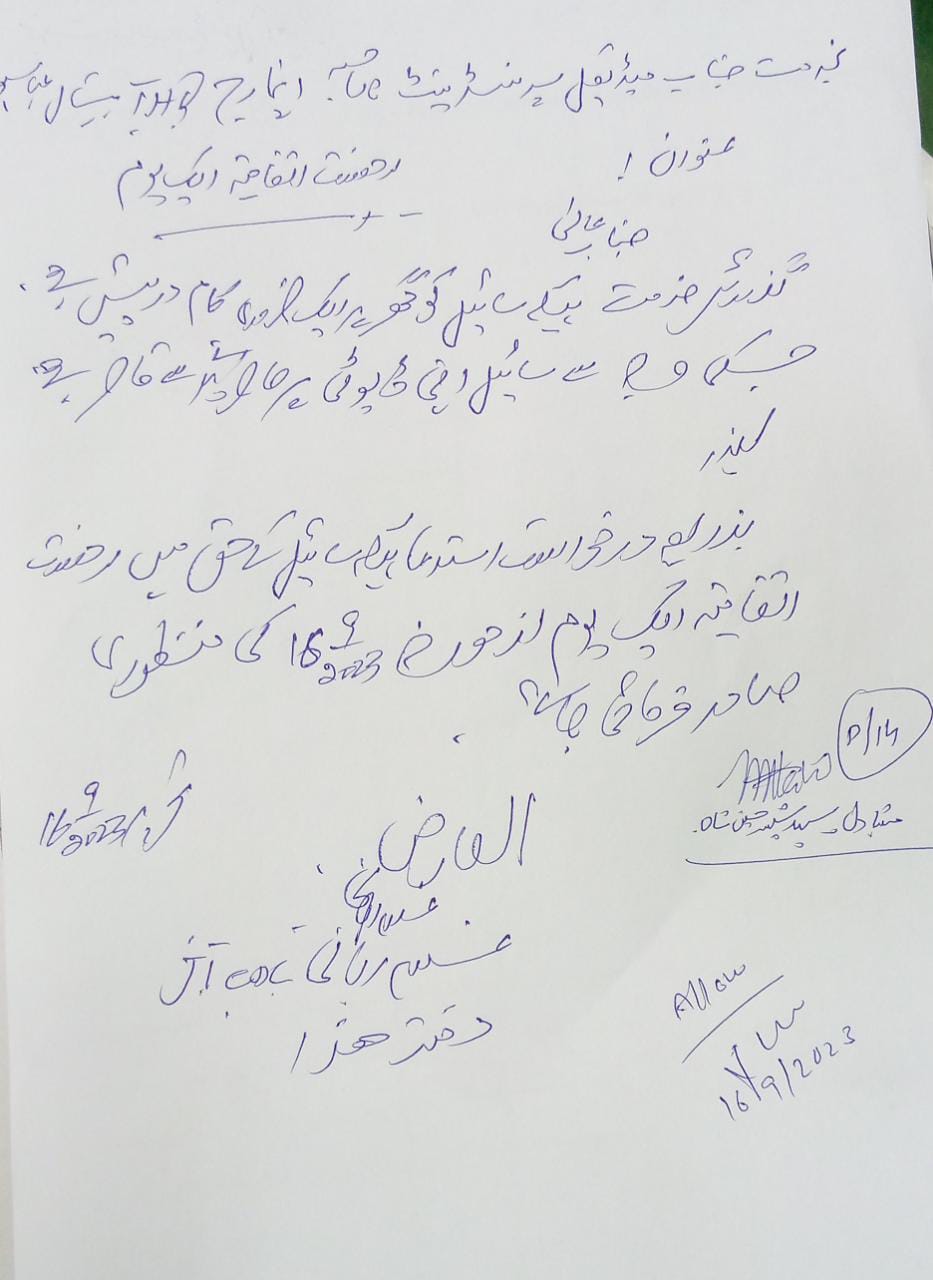 بخدمت جناب میڈیکل سپرنٹنڈنٹ صاحب انچارج ہسپتال
عنوان !
رخصت اتفاقیہ ایک یوم
جناب عالی
گذارش خدمت ہیکہ سائیل کو گھر پر ایک ضروری کام درپیش ہے۔
جسکی وجہ سے سائیل اپنی ڈیوٹی پر حاضر ہونے سے قاصر ہے۔
لہذا
بذریعہ درخواست استدعا ہیکہ سائیل کے حق میں رخصت
اتفاقیہ ایک یوم از مورخہ 16 9 2023 کی منظوری
صادر فرمائی جائے۔
P/14
متبادل سید حسین شاہ
16 9 2023
العارض
ربانی
دفتر ھذا
Allow
16/9/2023